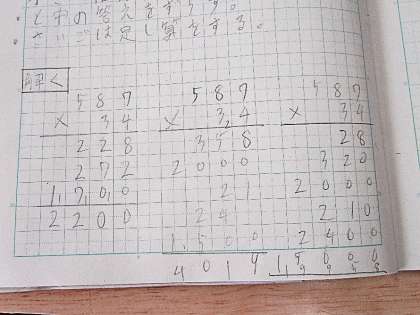 の答えをたす。
さいごは足し算をする。
解く
587
× 34
228
272
1,700
2200
587
× 34
2000
21
24
1,500
4014
587
× 34
28
320
2000
210
2400